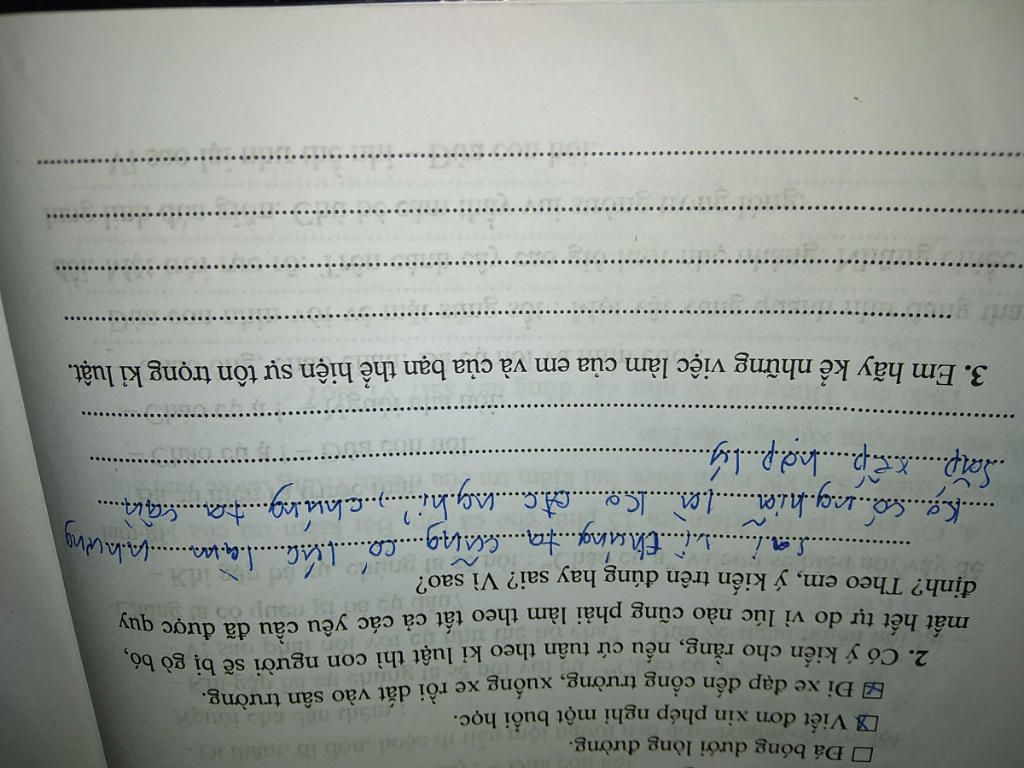 ☐ Đá bóng dưới lòng đường.
☑ Viết đơn xin phép nghỉ một buổi học.
☑ Đi xe đạp đến cổng trường, xuống xe rồi dắt vào sân trường.
2. Có ý kiến cho rằng, nếu cứ tuân theo kỉ luật thì con người sẽ bị gò bó,
mất hết tự do vì lúc nào cũng phải làm theo tất cả các yêu cầu đã được quy
định? Theo em, ý kiến trên đúng hay sai? Vì sao?
Sai vì chúng ta cũng có lúc làm nhưng
ko có nghĩa là ko đc nghỉ, chúng ta cần
sắp xếp hợp lý
3. Em hãy kể những việc làm của em và của bạn thể hiện sự tôn trọng kỉ luật.